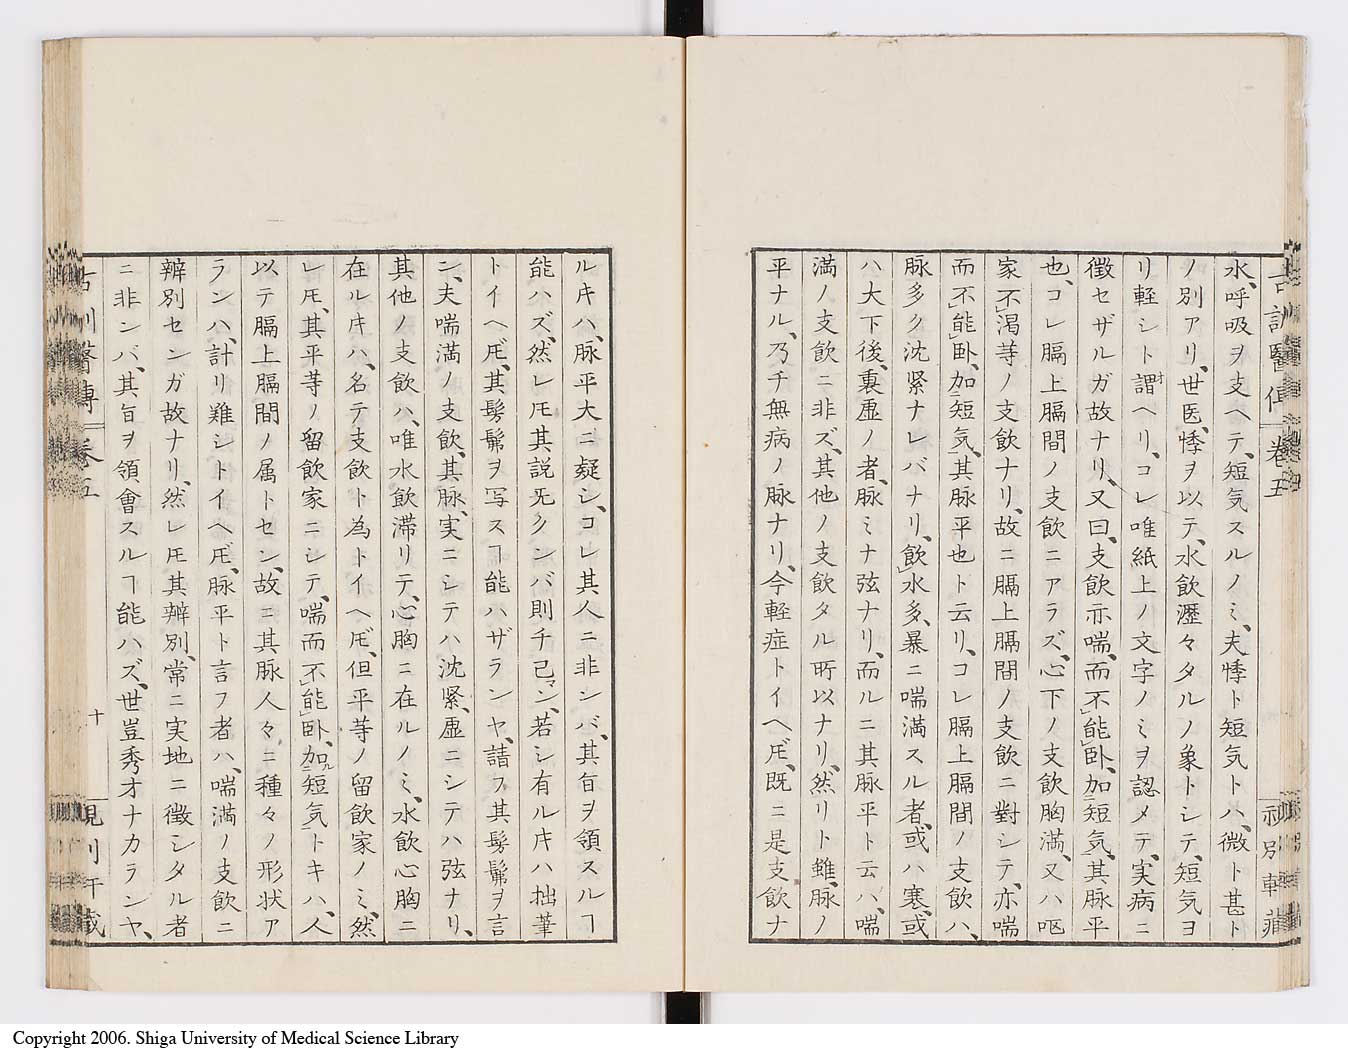 水、呼吸ヲ支ヘテ、短気スルノミ、夫悸ト短気トハ、微ト甚ト
ノ別アリ、世医、悸ヲ以テ、水飲瀝々タルノ象トシテ、短気ヨ
リ軽シト謂ヘリ、コレ唯紙上ノ文字ノミヲ認メテ、実病ニ
徴セザルガ故ナリ、又曰、支飲亦喘、而不能臥、加短気、其脉平
也、コレ膈上膈間ノ支飲ニアラズ、心下ノ支飲胸満、又ハ呕
家不渇等ノ支飲ナリ、故ニ膈上膈間ノ支飲ニ對シテ、亦喘
而不能臥、加ニ短気、其脉平也ト云リ、コレ膈上膈間ノ支飲ハ、
脉多ク沈紧ナレバナリ、飲水多、暴ニ喘満スル者、或ハ寒、或
ハ大下後、裏虚ノ者、脉ミナ弦ナリ、而ルニ其脉平ト云ハ、喘
満ノ支飲ニ非ズ、其他ノ支飲タル所以ナリ、然リト雖、脉ノ
平ナル、乃チ無病ノ脉ナリ、今軽症トイヘ𪜈、既ニ是支飲ナ
ルキハ、脉平大ニ疑シ、コレ其人ニ非ンバ、其旨ヲ領スルヿ
能ハズ、然レ𪜈其説旡クンバ則チ已マン、若シ有ル片ハ拙筆
トイヘ𪜈、其髣髴ヲ写スヿ能ハザランヤ、請フ其髣髴ヲ言
ン、夫喘満ノ支飲、其脉、実ニシテハ沈緊、虚ニシテハ弦ナリ、
其他ノ支飲ハ、唯水飲滞リテ、心胸ニ在ルノミ、水飲心胸ニ
在ル片ハ、名テ支飲ト為トイヘ𪜈、但平等ノ留飲家ノミ、然
レ𪜈、其平等ノ留飲家ニシテ、喘而不能臥、加ルニ短気トキハ、人
以テ膈上膈間ノ属トセン、故ニ其脉人々ニ種々ノ形状ア
ランハ、計リ難シトイヘ𪜈、脉平ト言フ者ハ、喘満ノ支飲ニ
辨別センガ故ナリ、然レ𪜈其辨別、常ニ実地ニ徴シタル者
ニ非ンバ、其旨ヲ領會スルヿ能ハズ、世豈秀才ナカランヤ、
古訓醫傳 巻五
十